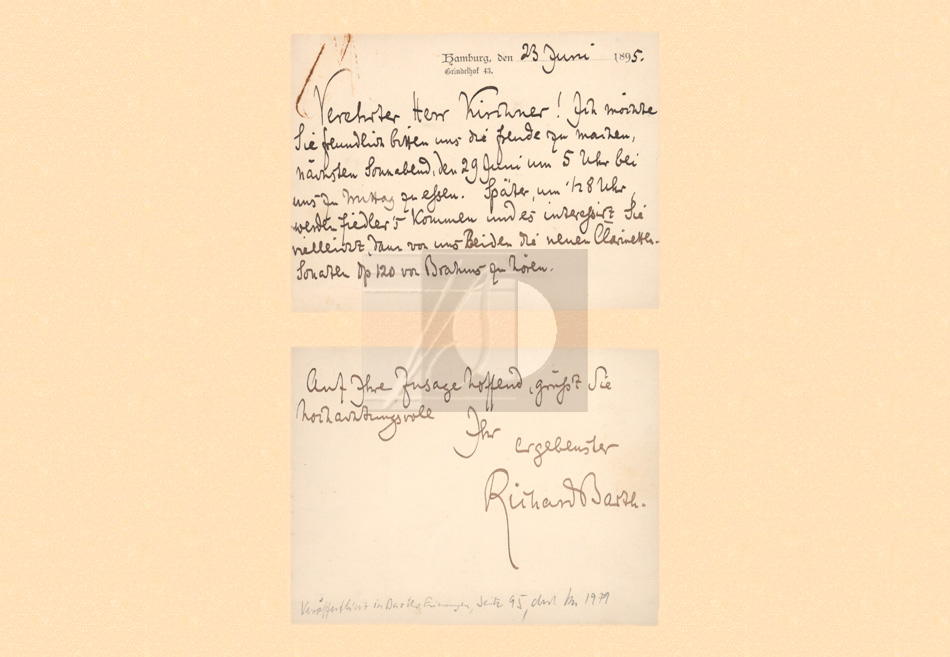 Hamburg, den 23 Juni 1895.
Grindelhof 43.
Verehrter Herr Kirchner! Ich möchte
Sie freundlich bitten uns die Freude zu machen,
nächsten Sonnabend, den 29 Juni um 5 Uhr bei
uns zu Mittag zu essen. Später, um ½8 Uhr,
werden Fiedler's kommen und es interessirt Sie
vielleicht, dann von uns Beiden die neuen Clarinetten-
Sonaten Op 120 von Brahms zu hören.
Auf Ihre Zusage hoffend, grüßt Sie
hochachtungsvoll
Ihr
ergebenster
Richard Barth.
Veröffentlicht in Barths Erinnerungen, Seite 95, 1979